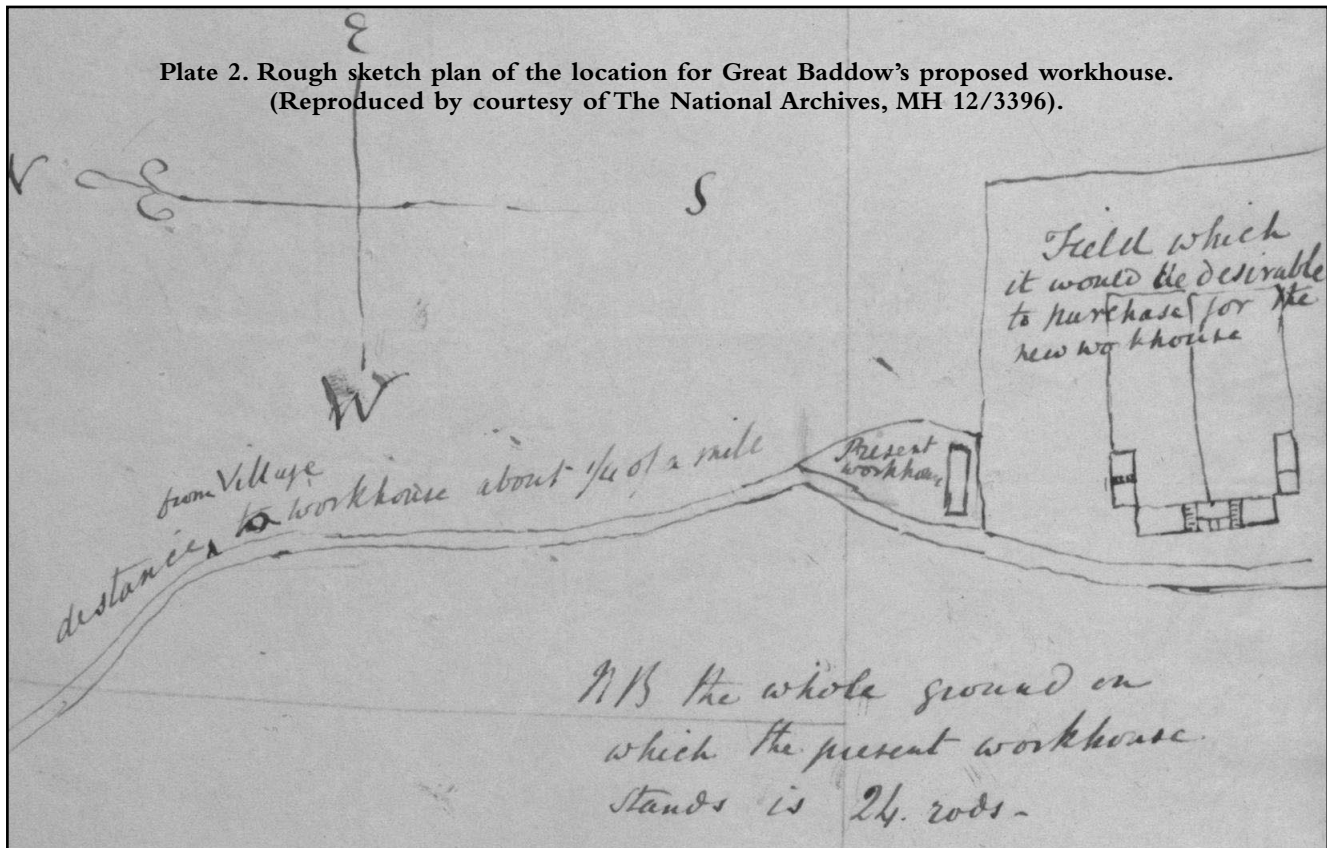 Plate 2. Rough sketch plan of the location for Great Baddow's proposed workhouse.
(Reproduced by courtesy of The National Archives, MH 12/3396).
E
N
S
W
Field which
it would be desirable
to purchase for the
new workhouse
Present
workhouse
from Village
distance to workhouse about 1/4 of a mile
NB the whole ground on
which the present workhouse
stands is 24. rods-